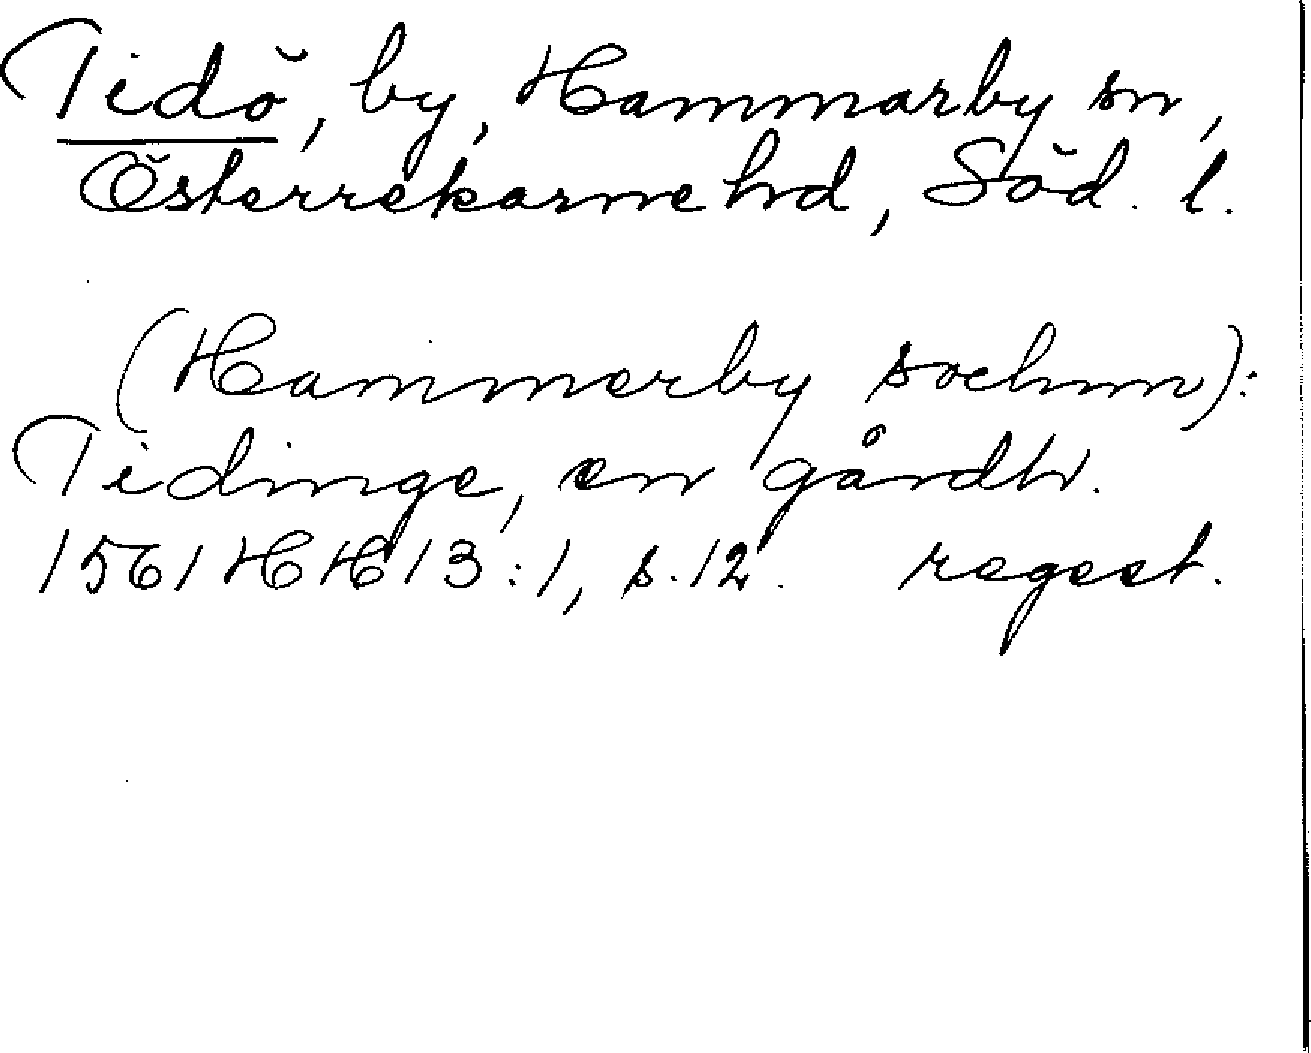 Tidö, by, Hammarby sn,
Österrekarne hd, Söd. l.
(Hammerby sochnn):
Tidinge, en gårdh.
1561 HH 13:1, s. 12. regest.